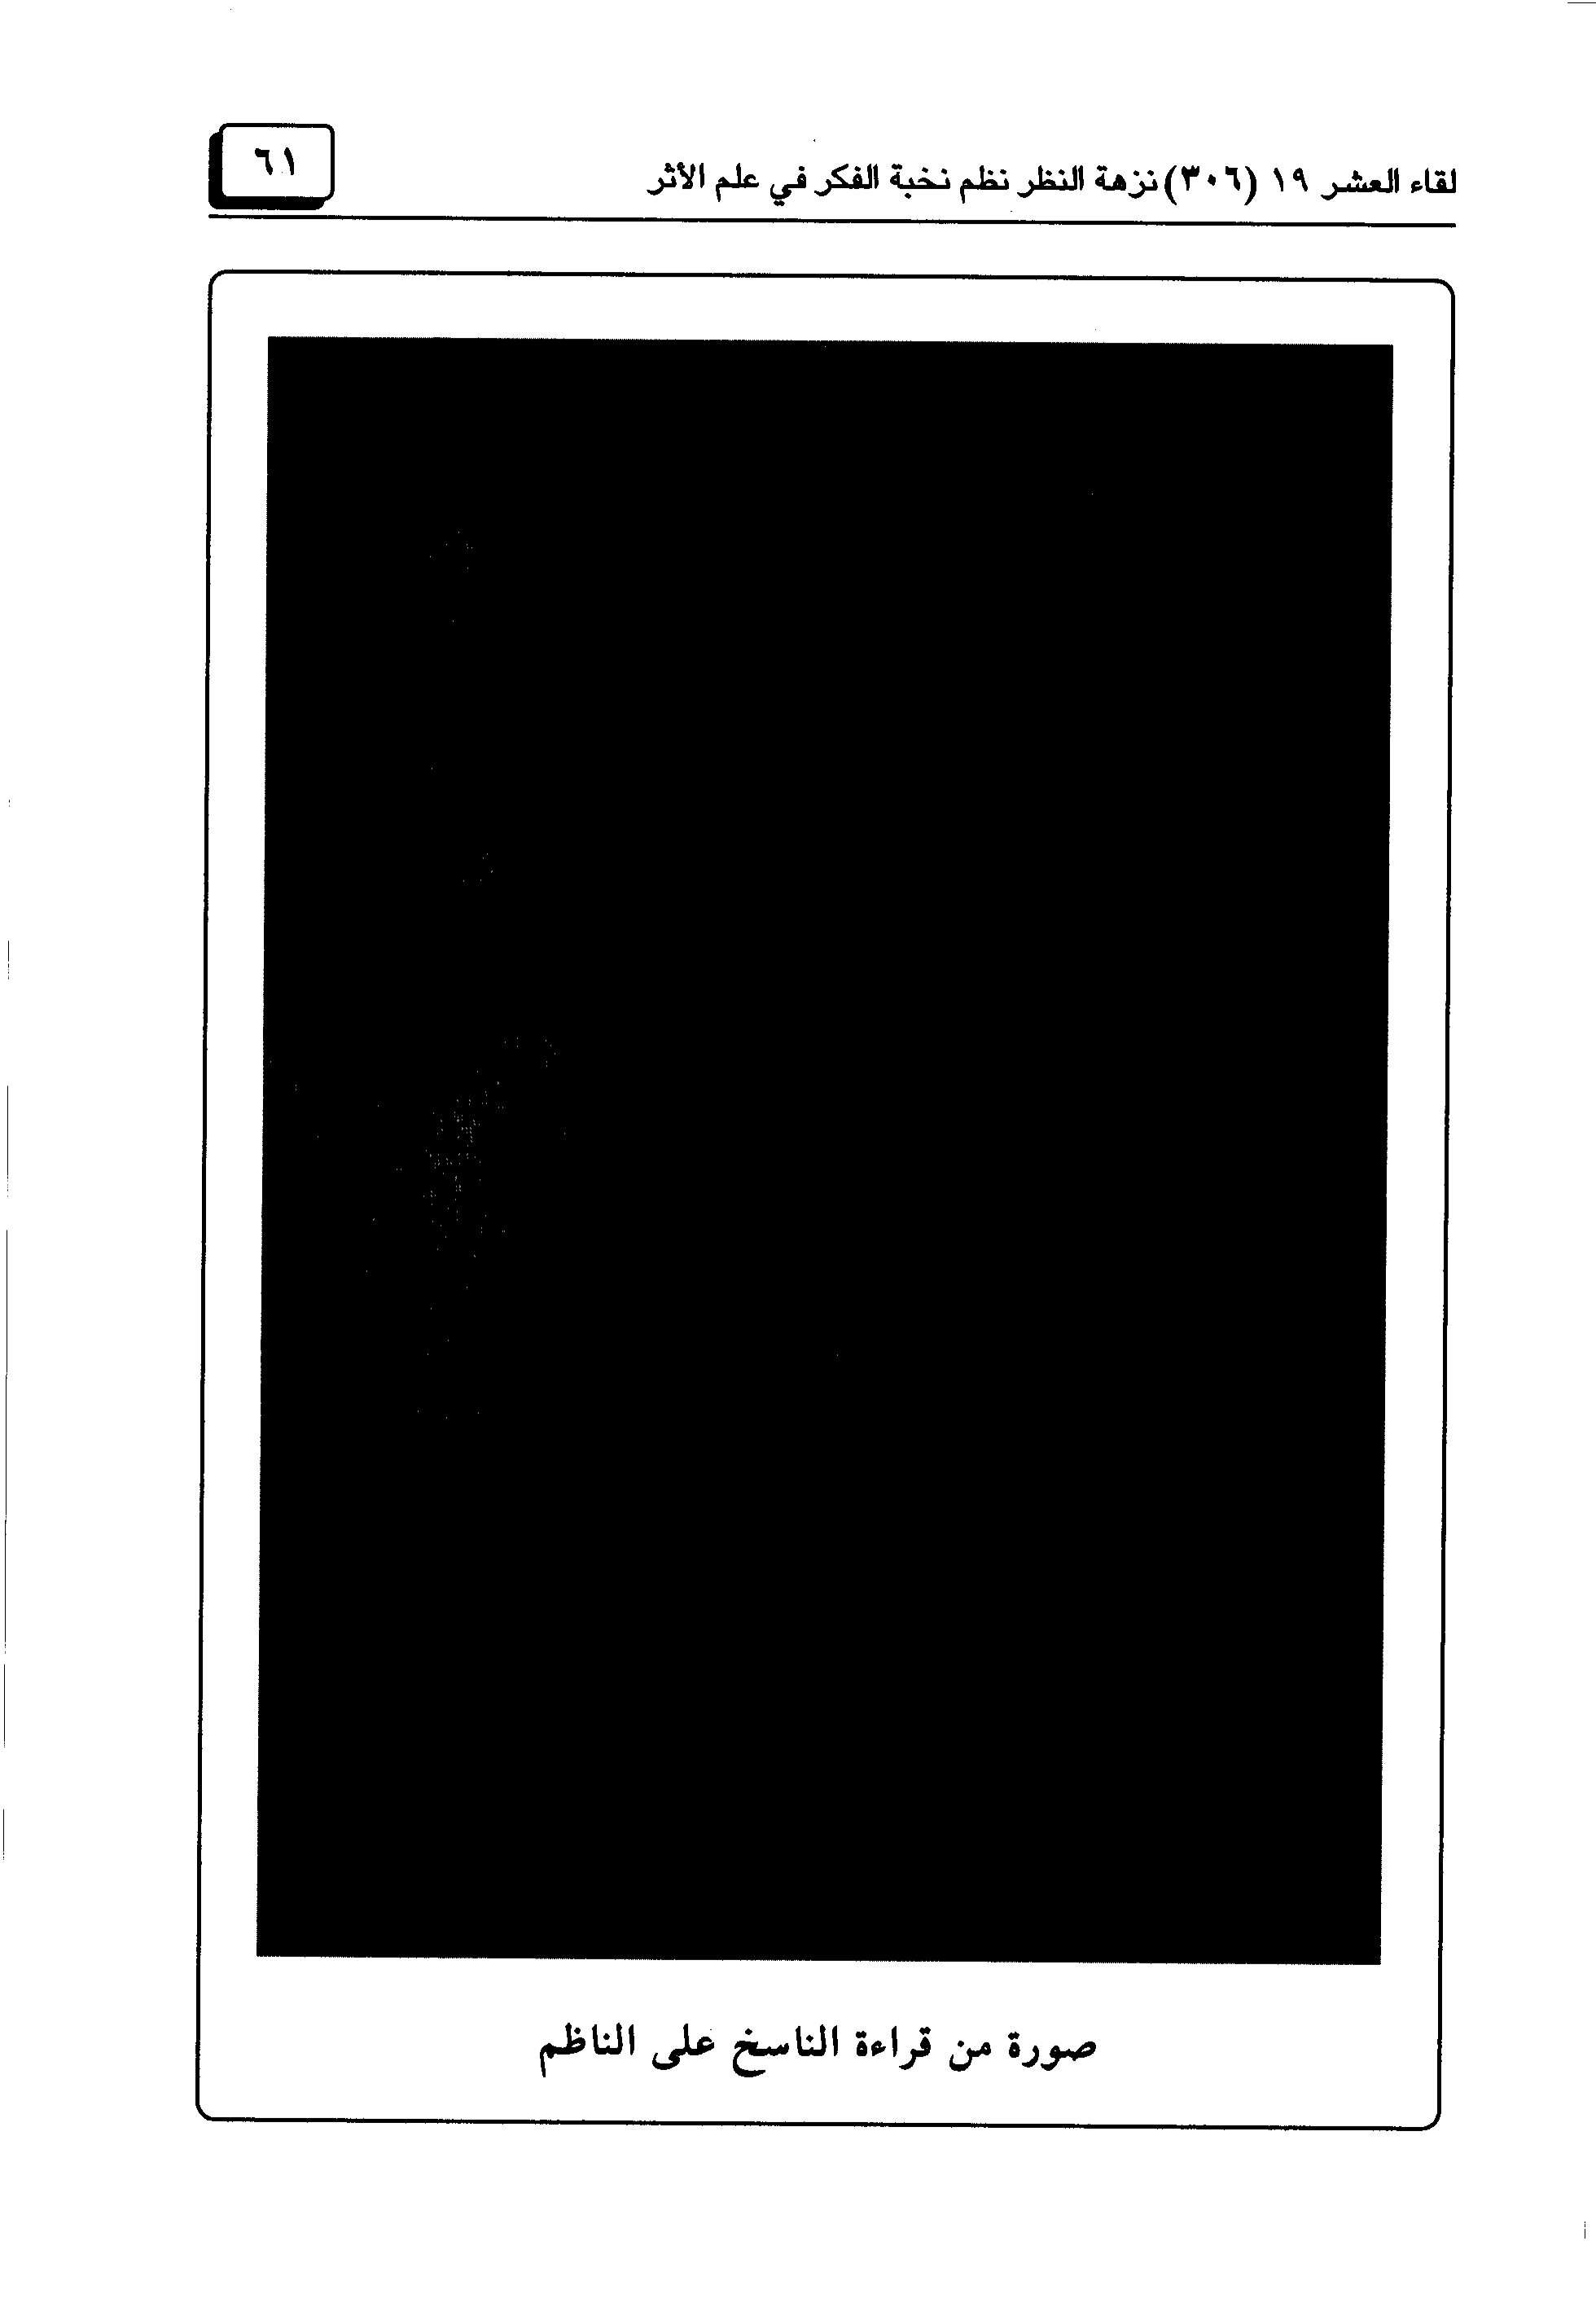 لقاء العشر ١٩ (٣٠٦) نزهة النظر نظم نخبة الفكر في علم الأثر
٦١
صورة من قراءة الناسخ على الناظم